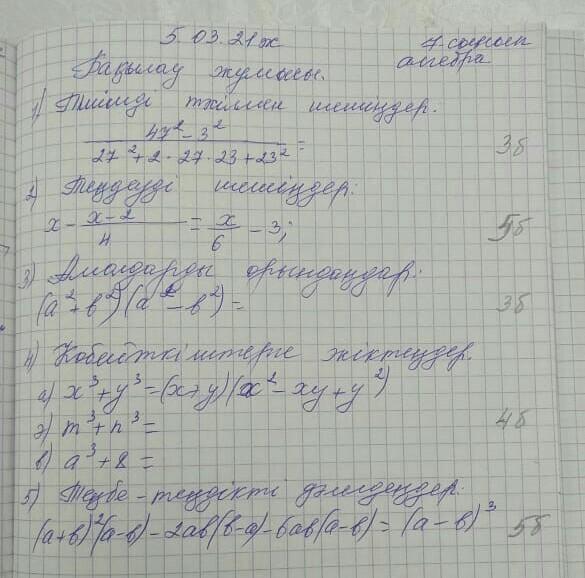 5.03.21ж 7 сынып
алгебра
Бақылау жұмысы.
1) Тиімді тәсілмен шешіңдер: 3б
47² - 3² / 27² + 2 · 27 · 23 + 23² =
2) Теңдеуді шешіңдер:
x - x - 2 / 4 = x / 6 - 3; 5б
3) Амалдарды орындаңдар:
(a² + b²)(a² - b²) = 3б
4) Көбейткіштерге жіктеңдер.
а) x³ + y³ = (x + y)(x² - xy + y²)
ә) m³ + n³ = 4б
в) a³ + 8 =
5) Тепе-теңдікті дәлелдеңдер.
(a+b)²(a-b) - 2ab(b-a) - 6ab(a-b) = (a - b)³ 5б